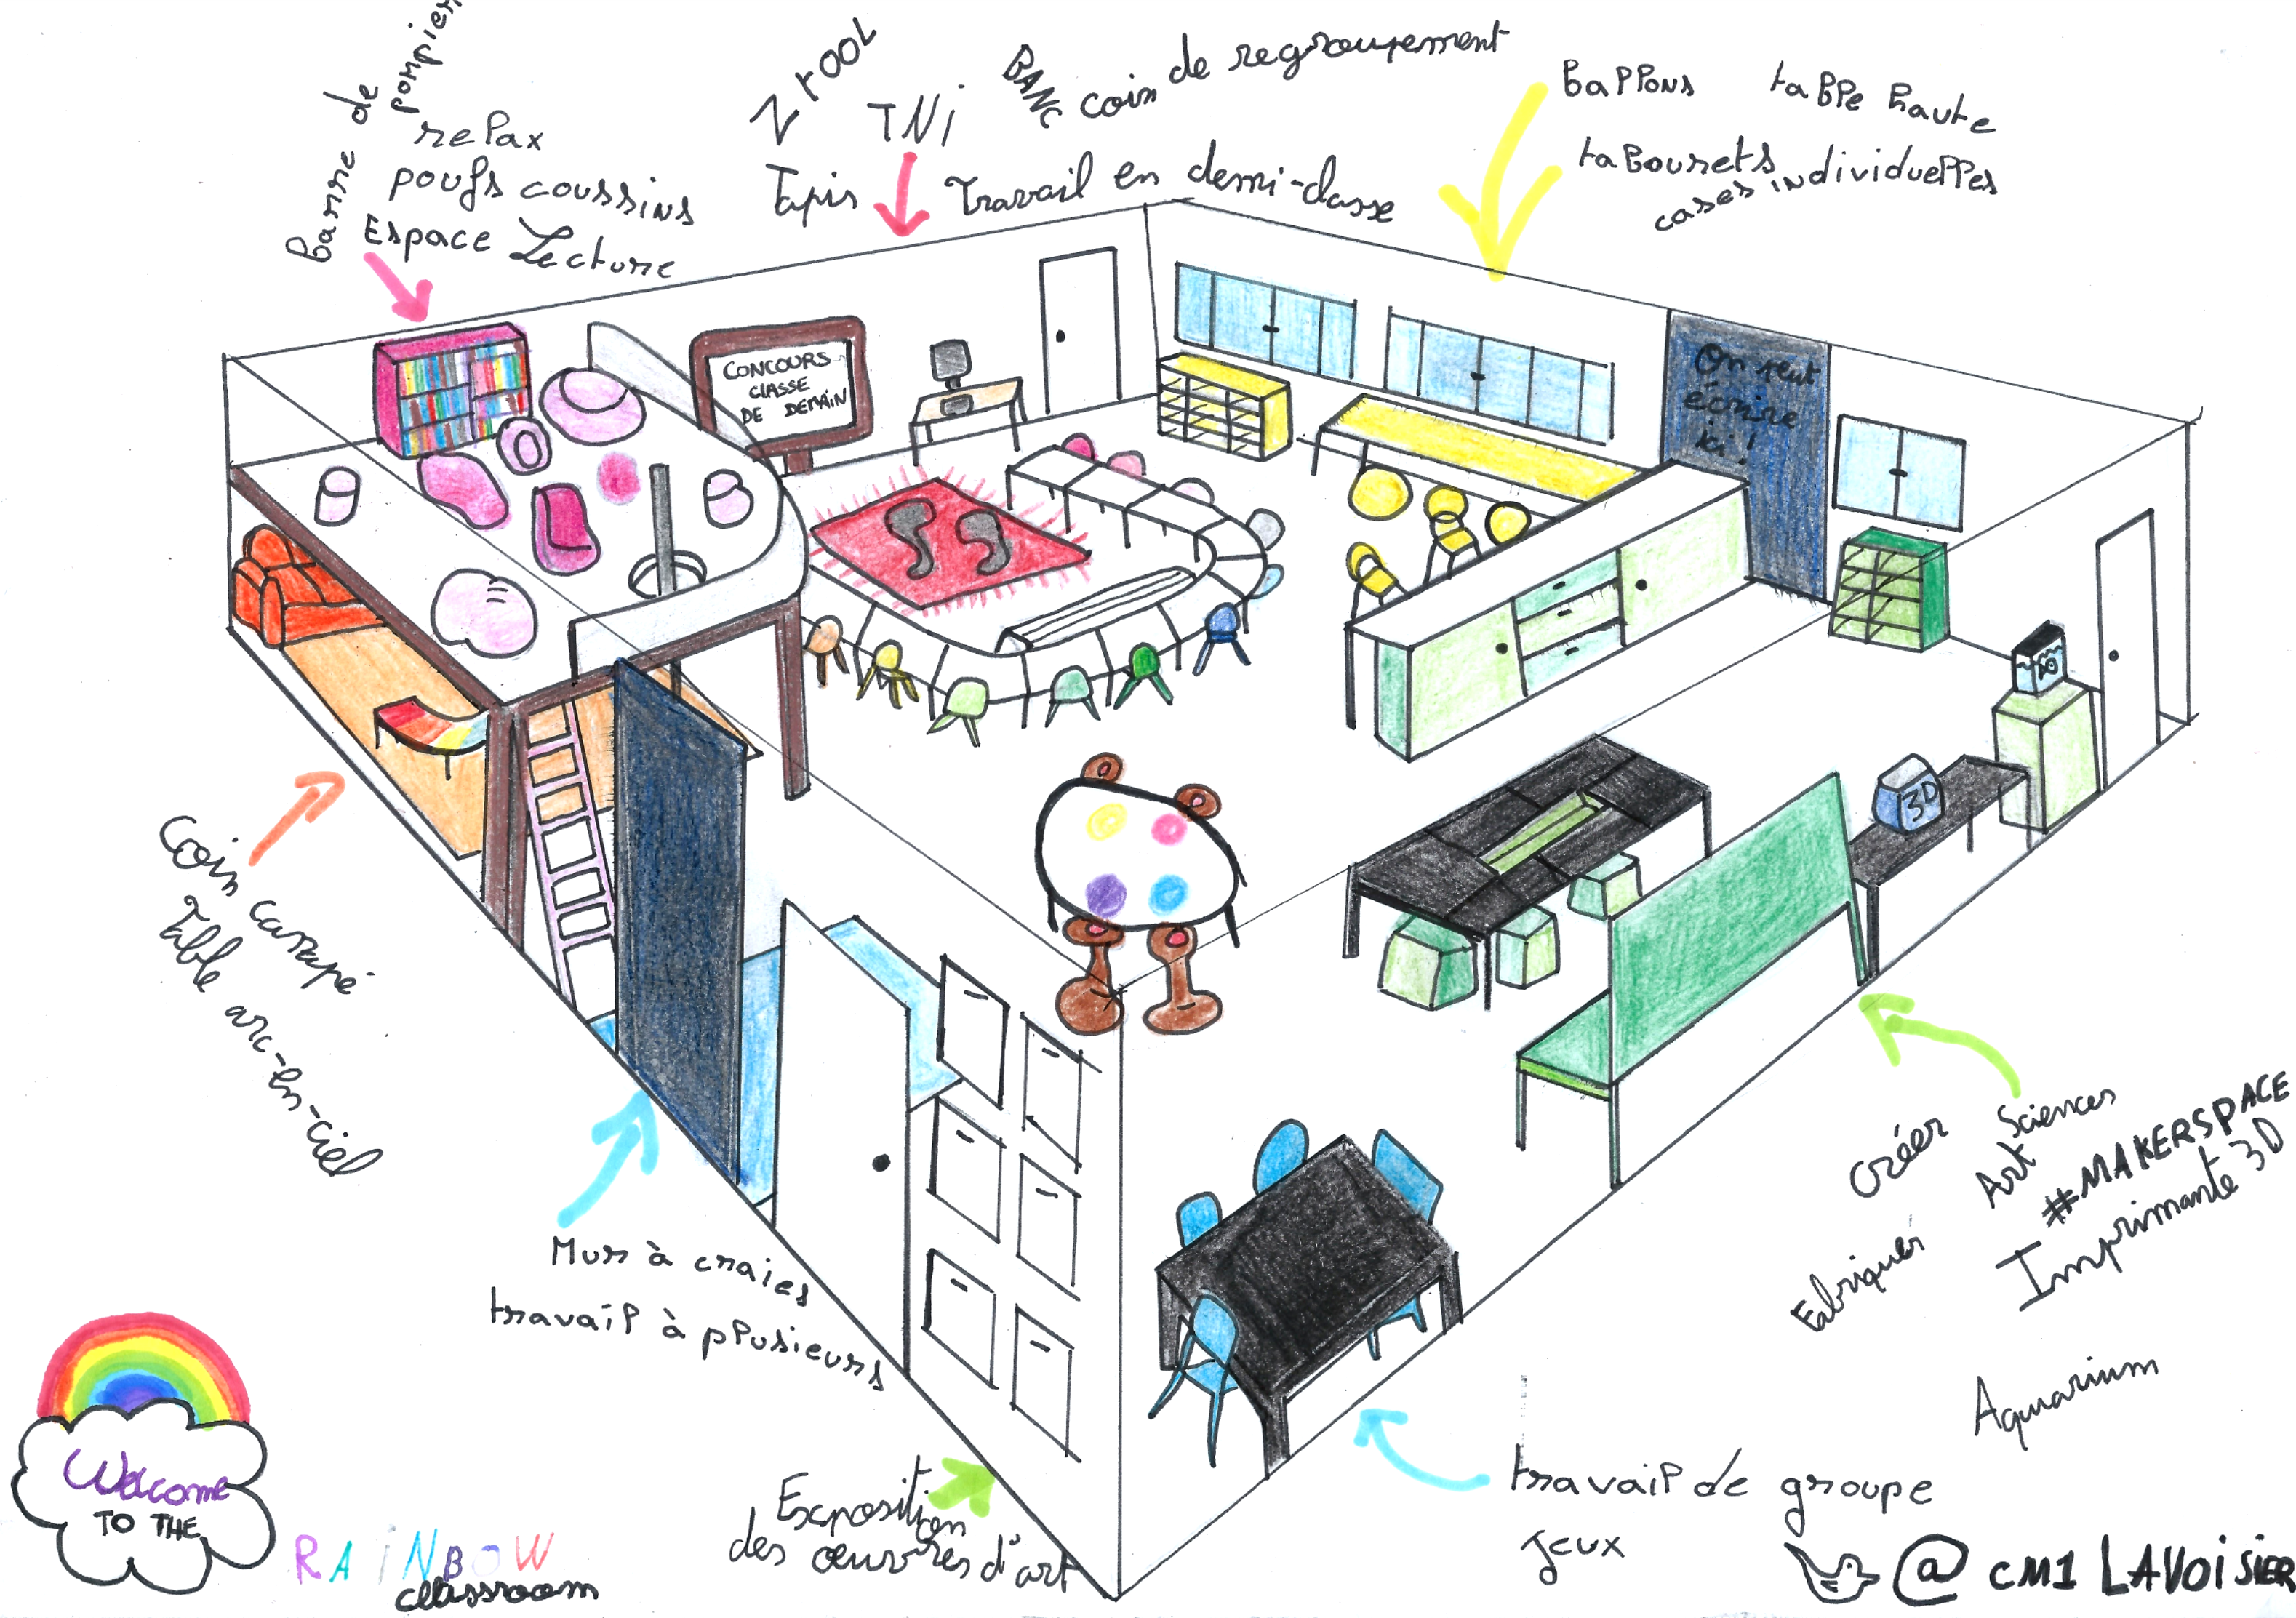 Barre de pompier
relax
poufs coussins
Espace Lecture
Z tool
TNi
BANC
coin de regroupement
Tapis
Travail en demi-classe
Ballons
table haute
tabourets
cases individuelles
CONCOURS
CLASSE
DE DEMAIN
On peut
écrire
ici !
3D
Coin canapé
Table arc-en-ciel
Mur à craies
travail à plusieurs
Créer
Sciences
Art
#MAKERSPACE
Imprimante 3D
Fabriquer
Aquarium
Exposition
des œuvres d'art
travail de groupe
Jeux
Welcome
TO THE
RAiNBOW
classroom
@CM1 LAVOiSiER